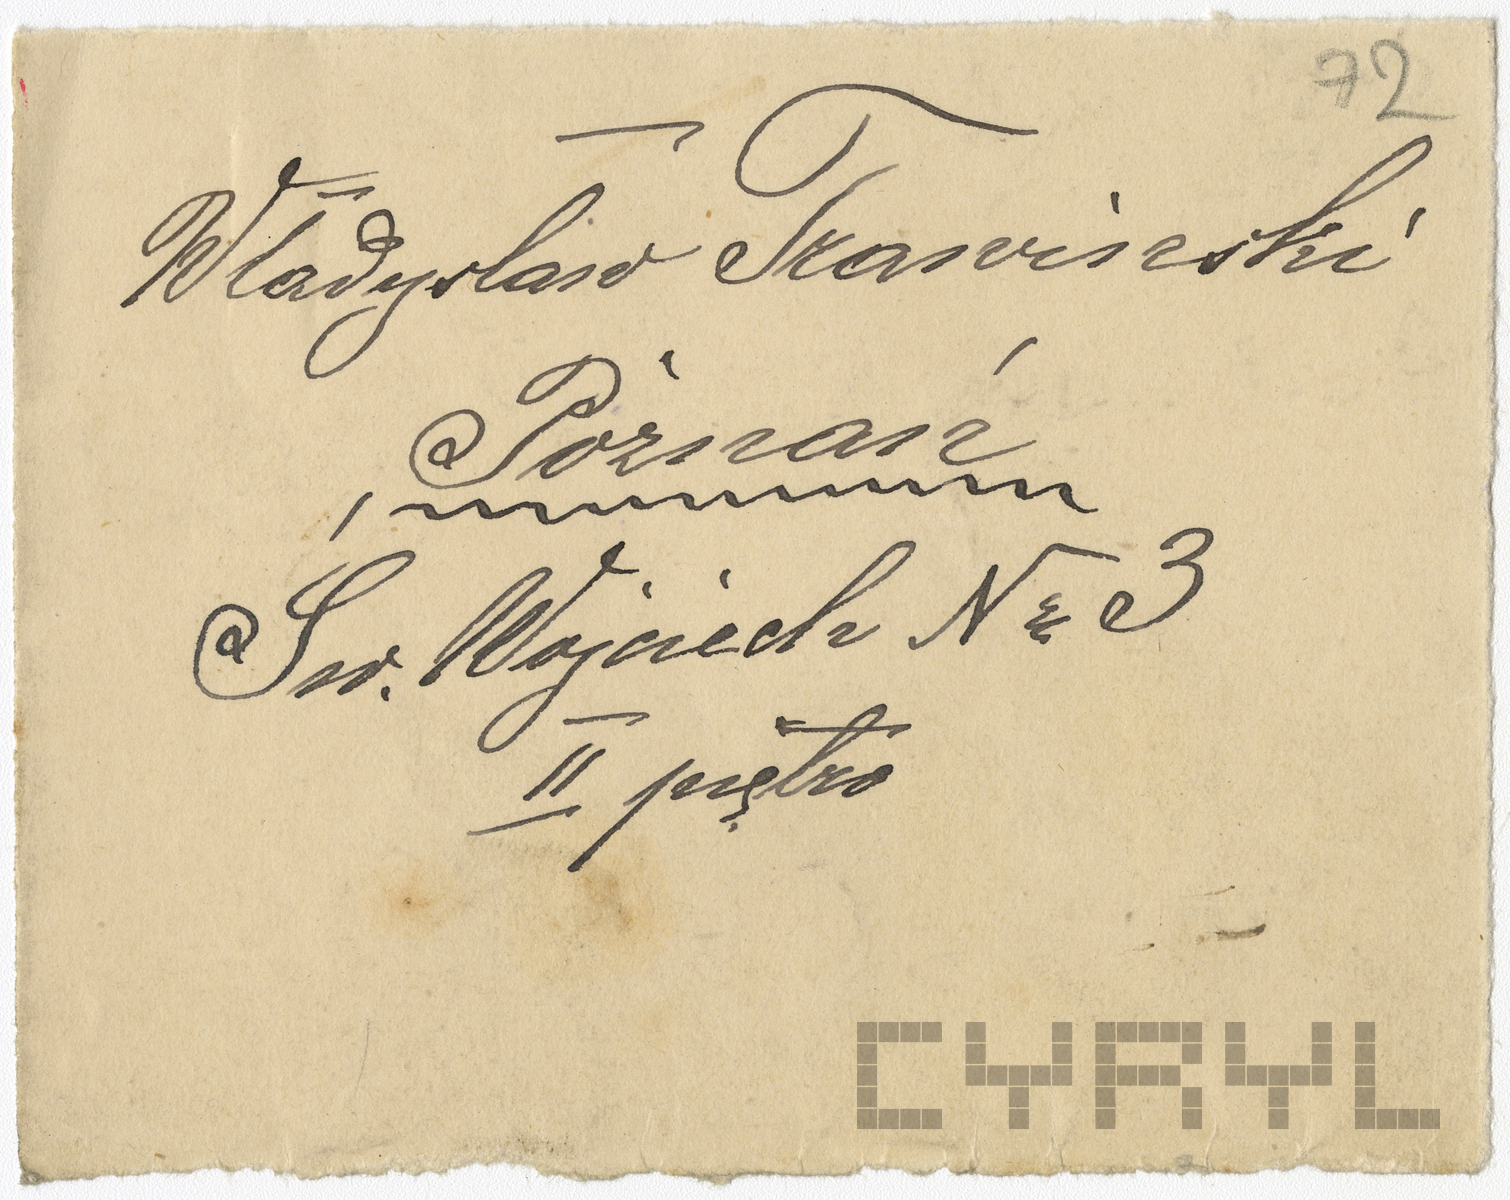 72
Władysław Trawinski
Poźnań
Św. Wojciech Nr 3
II piętro
CYRYL